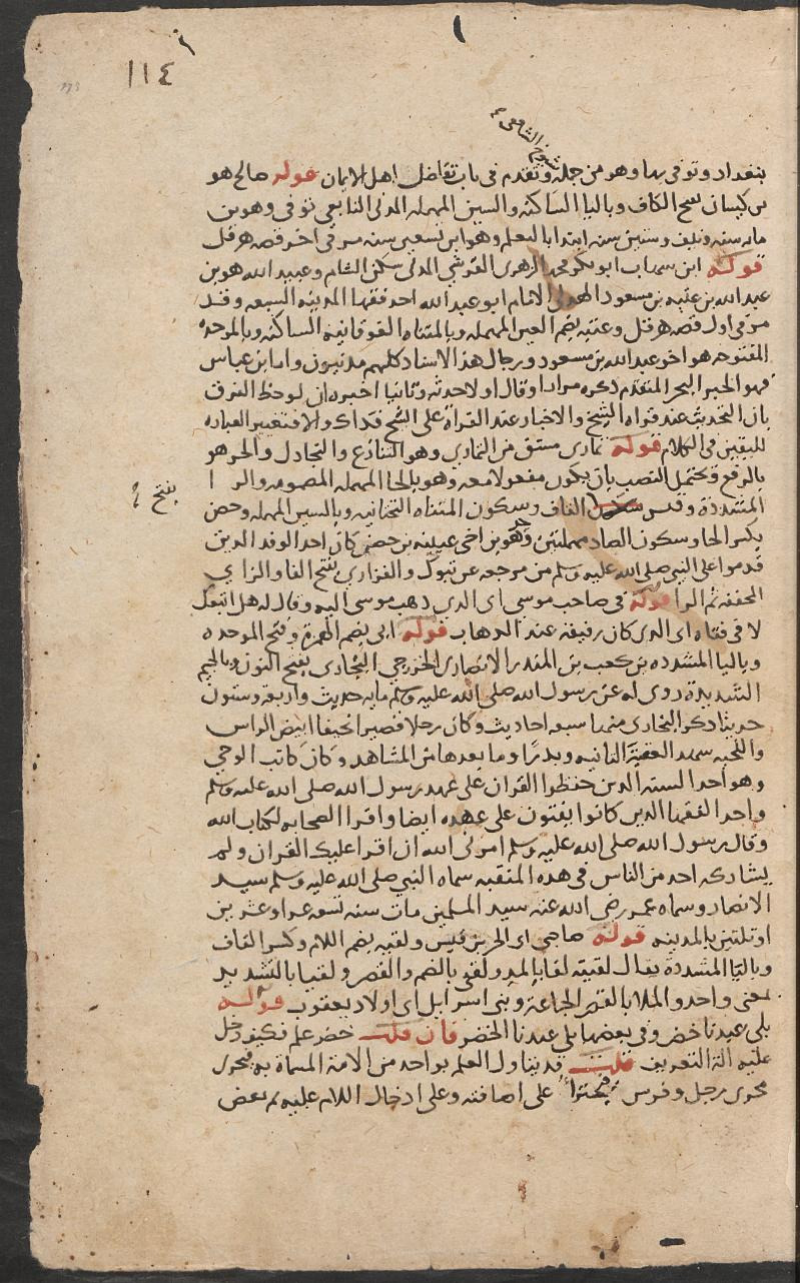 ١١٤
شيوخ الشافعي
ببغداد وتوفى بها وهو من جملة وتقدم فى باب تفاضل اهل الايمان قوله صالح هو
بن كيسان بفتح الكاف وباليا الساكنة والسين المهملة المدنى التابعى توفى وهو بن
مايه سنه ونيف وستين سنه ابتدا بالتعلم وهو ابن تسعين سنه مر فى اخر قصه هرقل
قوله ابن شهاب ابو بكر محمد الزهرى القرشي المدنى سكن الشام وعبيد الله هو بن
عبد الله بن عتبه بن مسعود الهذلى الامام ابو عبد الله احد فقها المدينه السبعه وقد
مر فى اول قصه هرقل وعتبه بضم العين المهمله وبالمثناه الفوقانيه الساكنه وبالموحده
المفتوحه هو اخو عبد الله بن مسعود ورجال هذا الاسناد كلهم مدنيون واما ابن عباس
فهو الحبر البحر المتقدم ذكره مرارا وقال اولا حدثه وثانيا اخبره ان لوحظ الفرق
بان التحديث عند قراه الشيخ والاخبار عند القراة على الشيخ فذاك والا فتغيير العباره
للتفنن فى الكلام قوله تمارى مشتق من التمارى وهو التنازع والتجادل والحر هو
بالرفع ويحتمل النصب بان يكون مفعولا معه وهو بالحا المهمله المضمومه والرا
المشددة وقيس بفتح القاف وسكون المثناه التحتانيه وبالسين المهمله وحصن
بكسر الحا وسكون الصاد مهملتين وهو بن اخى عيينه بن حصن كان احد الوفد الذين
قدموا على النبي صلى الله عليه وسلم من مرجعه عن تبوك والفزارى بفتح الفا والزاي
المخففه ثم الرا قوله فى صاحب موسى اى الذي ذهب موسى اليه وقال له هل اتبعك
لا فى فتاه اى الذى كان رفيقه عند الذهاب قوله ابى بضم الهمزة وفتح الموحده
وباليا المشدده بن كعب بن المنذر الانصارى الخزرجى النجارى بفتح النون وبالجيم
الشديدة روى له عن رسول الله صلى الله عليه وسلم مايه حديث واربعه وستون
حديثا ذكر البخارى منها سبعه احاديث وكان رجلا قصيرا نحيفا ابيض الراس
واللحيه شهد العقبة الثانيه وبدرًا وما بعدها من المشاهد وكان كاتب الوحي
وهو احد السته الذين حفظوا القران على عهد رسول الله صلى الله عليه وسلم
واحد الفقها الذين كانوا يفتون على عهده ايضا واقرا الصحابه لكتاب الله
وقال رسول الله صلى الله عليه وسلم امرنى الله ان اقرا عليك القران ولم
يشاركه احد من الناس فى هذه المنقبه سماه النبي صلى الله عليه وسلم سيد
الانصار وسماه عمر رضى الله عنه سيد المسلمين مات سنه تسعه عشر او عشرين
او ثلثين بالمدينه قوله صاحبى اى الحر بن قيس ولقيه بضم اللام وكسر القاف
وباليا المشددة يقال لقيته لقا بالمد ولقى بالضم والقصر ولقيا بالتشديد
بمعنى واحد والملا بالقصر الجماعة وبنى اسرايل اى اولاد يعقوب قوله
بلى عبدنا خضر وفى بعضها بلى عبدنا الخضر فان قلت خضر علم فكيف دخل
عليه الة التعريف قلت قد يتاول العلم بواحد من الامة المسماة به فيجرى
مجرى رجل وفرس فيجترا على اضافته وعلى ادخال اللام عليه ثم بعض